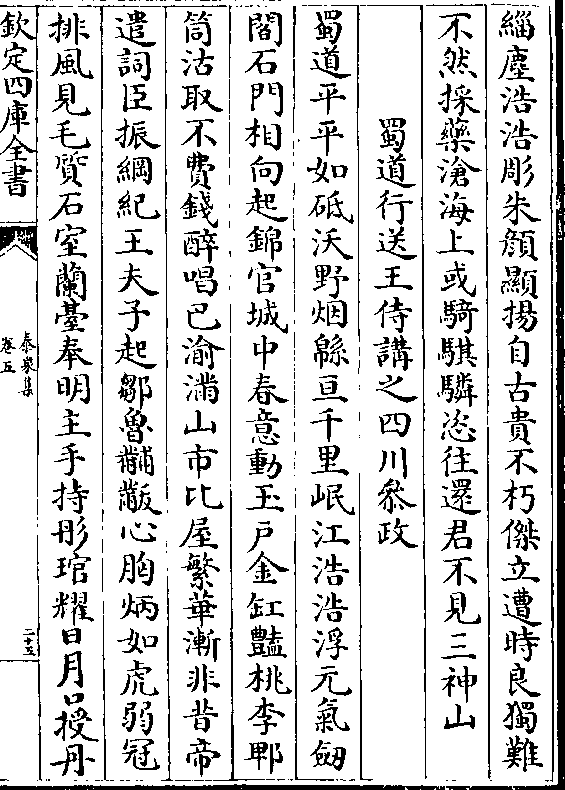 緇塵浩浩彫朱顔顯揚自古貴不朽傑立遭時良獨難
不然採藥滄海上或騎騏驎恣往還君不見三神山
蜀道行送王侍講之四川叅政
蜀道平平如砥沃野烟緜亘千里岷江浩浩浮元氣劒
閣石門相向起錦官城中春意動玉戸金缸豔桃李郫
筒沽取不費錢醉唱巴渝滿山市比屋繁華漸非昔帝
遣詞臣振綱紀王夫子起鄒魯黼黻心胸炳如虎弱冠
排風見毛質石室蘭臺奉明主手持彤琯耀日月口授丹
欽定四庫全書
泰泉集
卷五
二十五